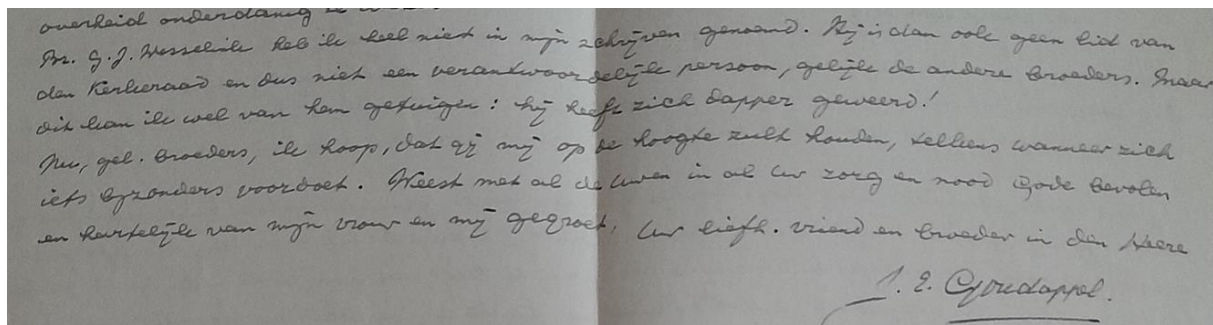 overheid onderdanig te
Br. G. J. Wesselink heb ik heel niet in mijn schrijven genoemd. Hij is dan ook geen lid van
den Kerkeraad en dus niet een verantwoordelijk persoon, gelijk de andere broeders. Maar
dit kan ik wel van hem getuigen: hij heeft zich dapper geweerd!
Nu, gel. broeders, ik hoop, dat gij mij op de hoogte zult houden, telkens wanneer zich
iets bizonders voordoet. Weest met al de uwen in al uw zorg en nood Gode bevolen
en hartelijk van mijn vrouw en mij gegroet, Uw liefh. vriend en broeder in den Heere
J. E. Goudappel.